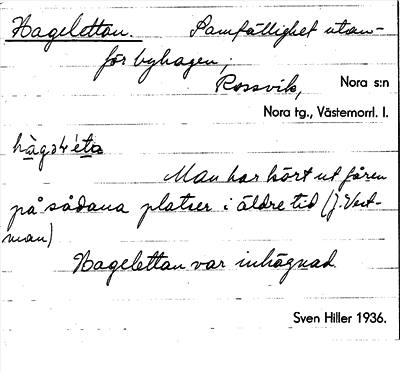 Hagelettan. Samfällighet utan-
för byhagen,
Rossvik, Nora s:n
Nora tg., Västernorrl. l.
Man har kört ut fåren
på sådana platser i äldre tid (J. Vest-
man)
Hagelettan var inhägnad.
Sven Hiller 1936.